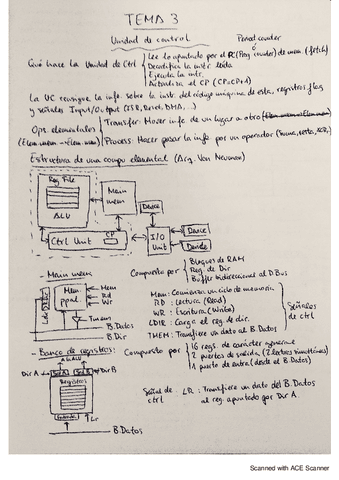 TEMA 3
Unidad de control
Qué hace la Unidad de Ctrl
Lee lo apuntado por el PC (Prog counter) de mem. (fetch)
Decodifica la instr. leída
Ejecuta la intr.
Actualiza el CP (CP=CP+1)
La UC consigue la info. sobre la instr. del código máquina de esta, registros, flag
y señales Input/Output (IRQ, Reset, DMA, ...)
Ops elementales
Transfer: Mover info de un lugar a otro
Process: Hacer pasar la info por un operador (suma, resta, SCR,)
Estructura de una compu elemental (Arq. Von Neuman)
Reg File
ALU
Main
mem
Ctrl Unit
CP
I/O
Unit
Device
Device
Device
- Main mem
Compuesto por
Bloques de RAM
Reg. de Dir
Buffer bidireccional al D Bus
Mem
ppal.
Mem
Rd
Wr
Tmem
B.Datos
B.Dir
Mem: Comienza un ciclo de memoria
RD : Lectura (Read)
WR : Escritura (Write)
LDIR: Carga el reg. de dir.
TMEM: Transfiere un dato al B.Datos
Señales
de ctrl
- Banco de registros:
Compuesto por
16 regs. de carácter general
2 puertos de salida (2 lecturas simultáneas)
1 puerto de entra (desde el B.Datos)
ALU
Dir A
Sal A
Sal B
Dir B
Registros
Entrada
Lr
B.Datos
Señal de
ctrl
LR : Transfiere un dato del B.Datos
al reg. apuntado por Dir A.
Scanned with ACE Scanner